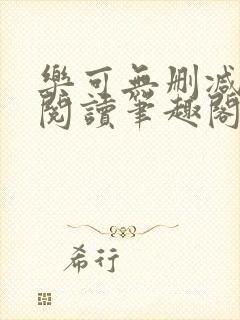 樂可無刪減
閱讀筆趣閣
希行